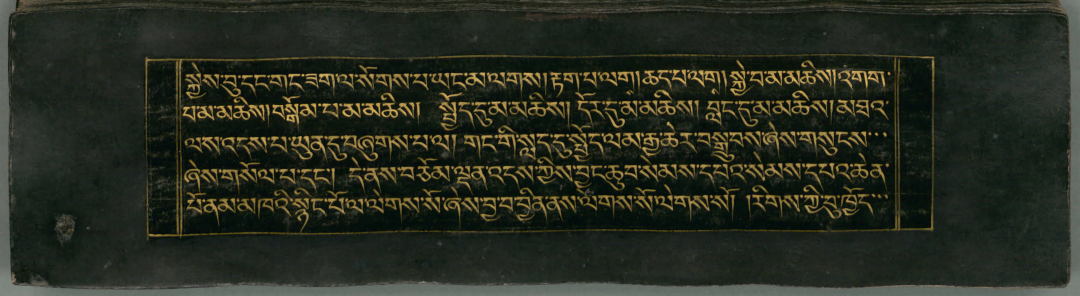 སྐྱེས་བུ་དང་གང་ཟག་ལ་སོགས་པ་ཡང་མ་ལགས། རྟག་པ་ལག། ཆད་པ་ལག། སྐྱེ་བ་མ་མཆིས། འགག་
པ་མ་མཆིས། བསྒོམ་པ་མ་མཆིས། སྤྱོད་དུ་མ་མཆིས། དོར་དུ་མ་མཆིས། བླང་དུ་མ་མཆིས། མཐའ་
ལས་འདས་པ་ཡུན་དུ་བཞུགས་པ་ལ། གང་གི་སླད་དུ་སྤྱོད་ལམ་རྒྱ་ཆེར་བསྒྲུབས་ཞེས་གསུངས་
ཞེས་གསོལ་པ་དང་། དེ་ནས་བཅོམ་ལྡན་འདས་ཀྱིས་བྱང་ཆུབ་སེམས་དཔའ་སེམས་དཔའ་ཆེན་
པོ་ནམ་མཁའི་སྙིང་པོ་ལ་ལེགས་སོ་ཞེས་བྱ་བ་བྱིན་ནས་ལེགས་སོ་ལེགས་སོ། །རིགས་ཀྱི་བུ་ཁྱོད་